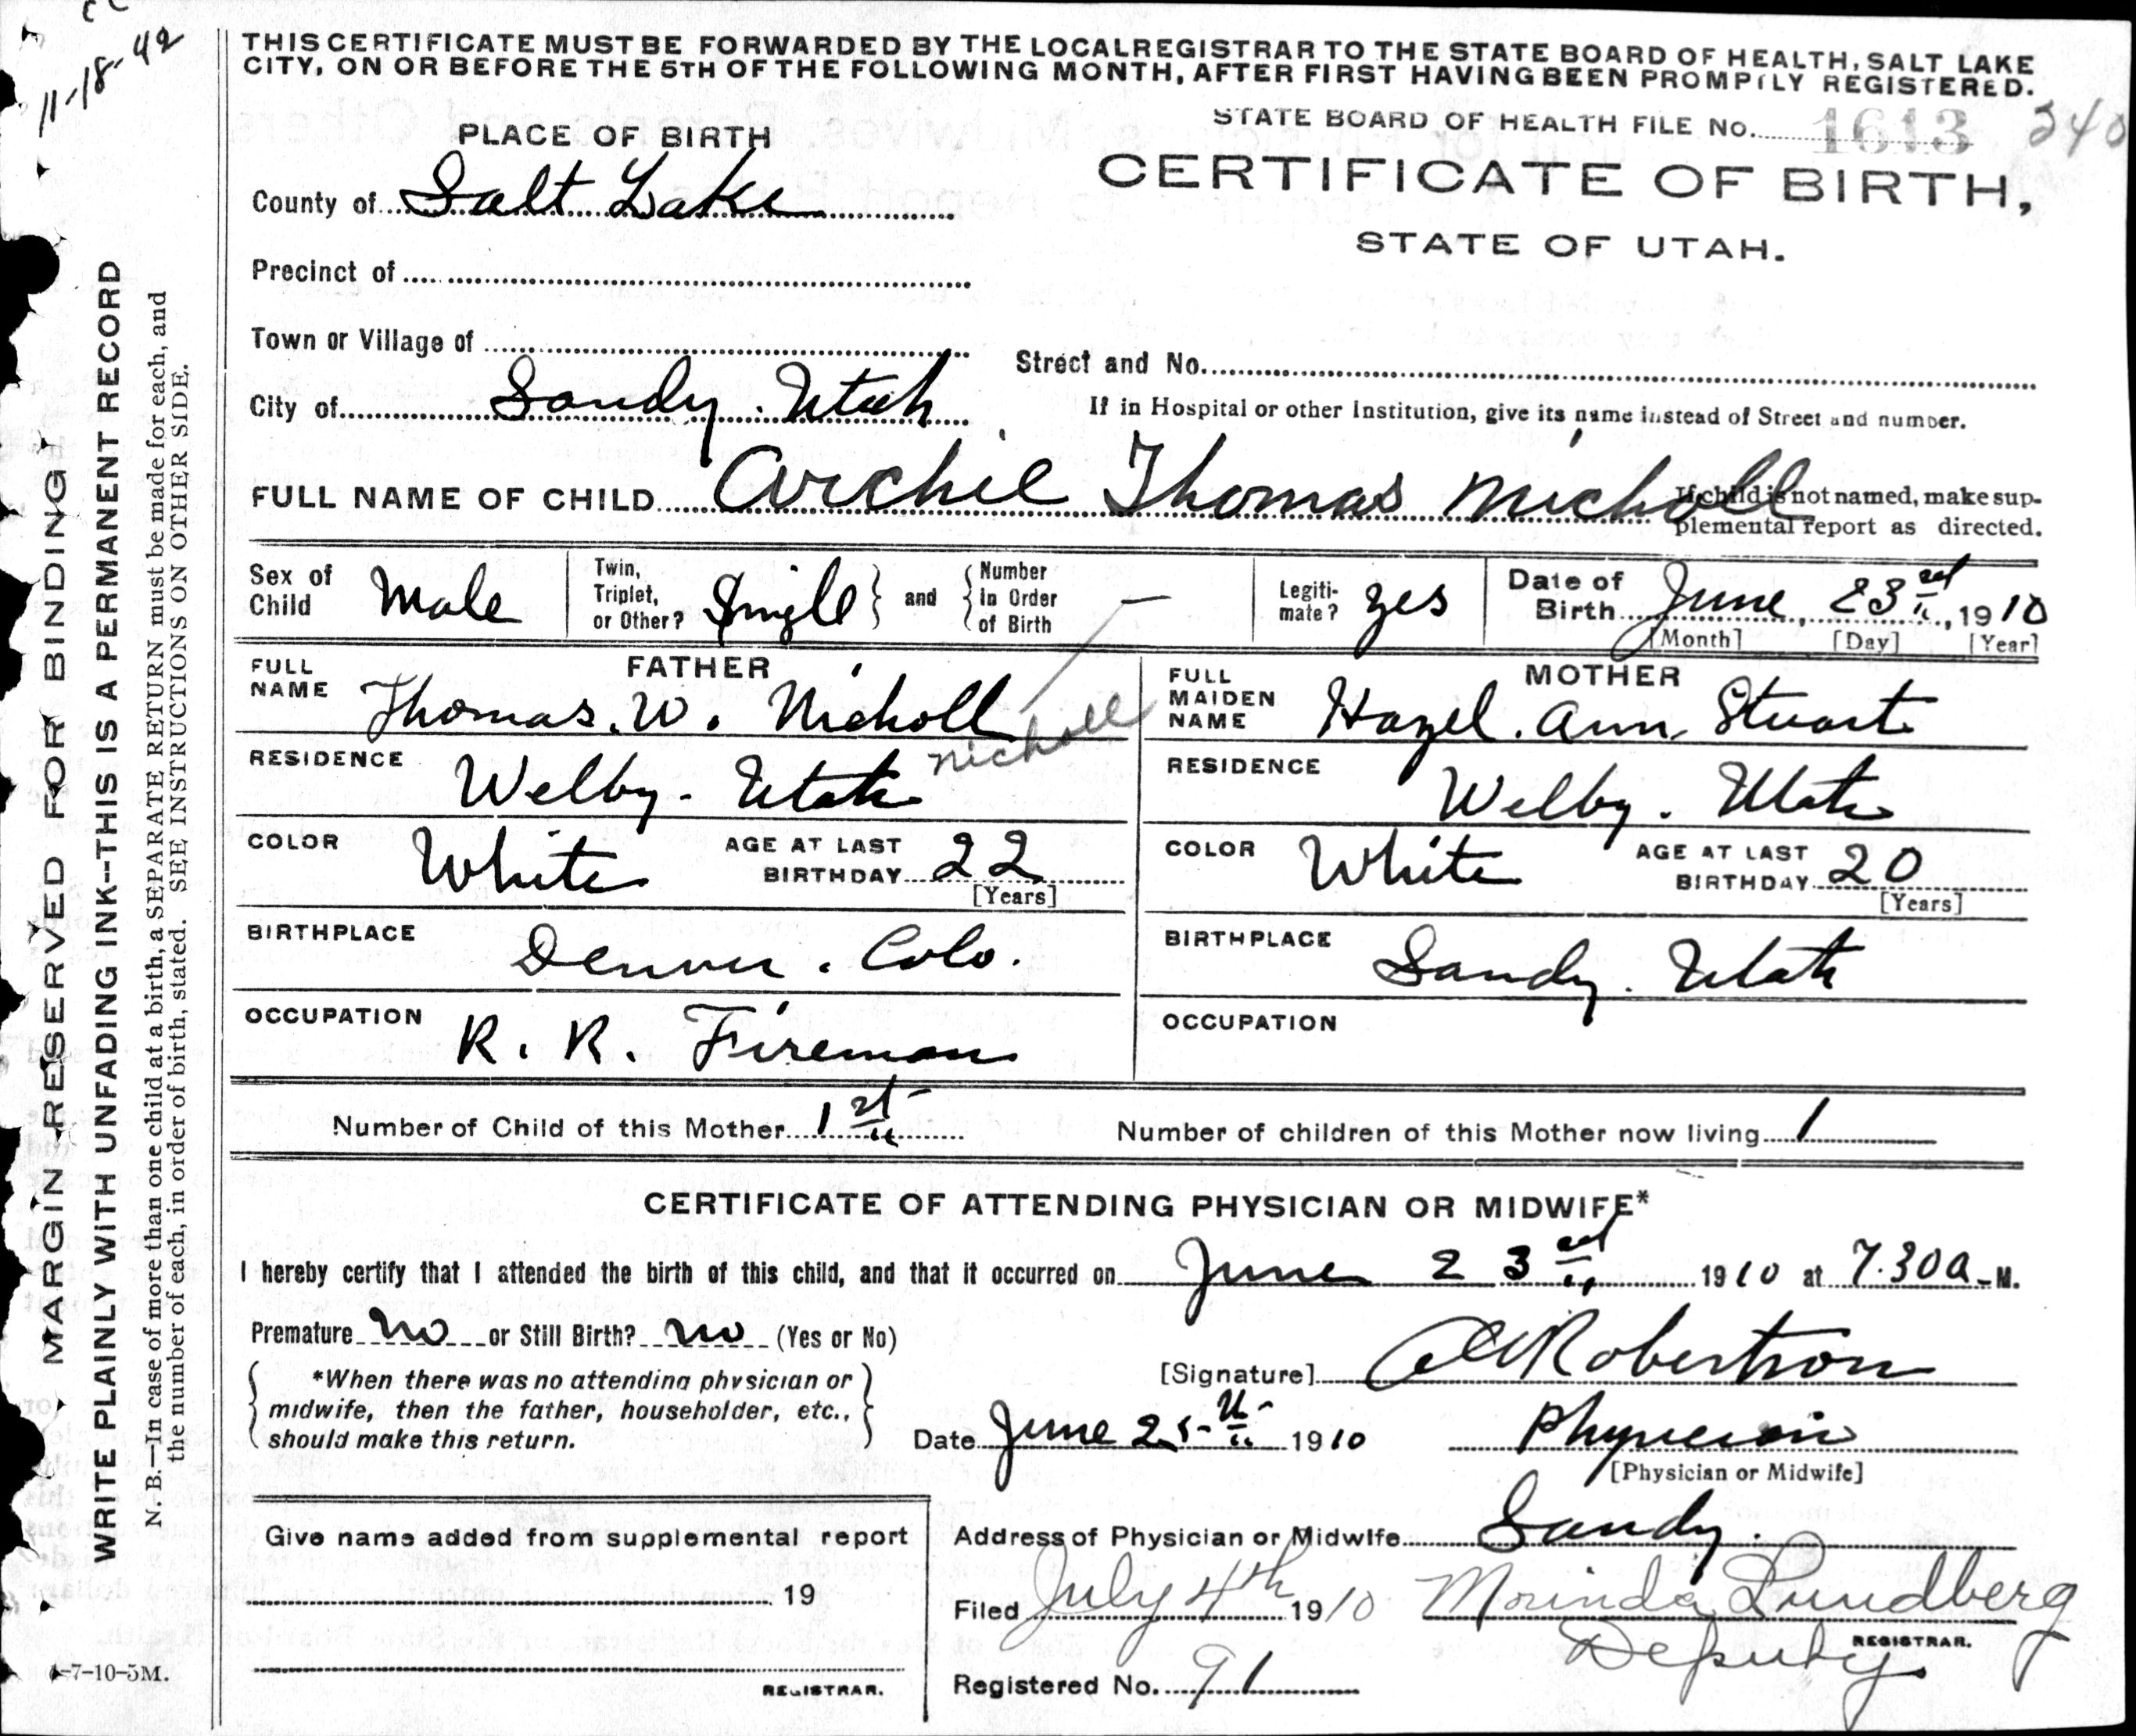 11-18-42
THIS CERTIFICATE MUST BE FORWARDED BY THE LOCAL REGISTRAR TO THE STATE BOARD OF HEALTH, SALT LAKE
CITY, ON OR BEFORE THE 5TH OF THE FOLLOWING MONTH, AFTER FIRST HAVING BEEN PROMPTLY REGISTERED.
STATE BOARD OF HEALTH FILE No. 1613 340
PLACE OF BIRTH
CERTIFICATE OF BIRTH,
STATE OF UTAH.
County of Salt Lake
Precinct of
Town or Village of
Street and No.
City of Sandy. Utah
If in Hospital or other Institution, give its name instead of Street and number.
FULL NAME OF CHILD Archie Thomas Nicholl
If child is not named, make sup-
plemental report as directed.
Sex of Child Male
Twin, Triplet, or Other? Single and Number in Order of Birth —
Legiti-mate? yes
Date of Birth June, 23rd, 1910
[Month] [Day] [Year]
FATHER
FULL NAME Thomas. W. Nicholl
Nicholl
RESIDENCE Welby - Utah
COLOR White AGE AT LAST BIRTHDAY 22
[Years]
BIRTHPLACE Denver. Colo.
OCCUPATION R. R. Fireman
MOTHER
FULL MAIDEN NAME Hazel. Ann. Stuart
RESIDENCE Welby. Utah
COLOR White AGE AT LAST BIRTHDAY 20
[Years]
BIRTHPLACE Sandy. Utah
OCCUPATION
Number of Child of this Mother 1st
Number of children of this Mother now living 1
CERTIFICATE OF ATTENDING PHYSICIAN OR MIDWIFE*
I hereby certify that I attended the birth of this child, and that it occurred on June 23rd 1910 at 7.30 A. M.
Premature No or Still Birth? No (Yes or No)
*When there was no attending physician or
midwife, then the father, householder, etc.,
should make this return.
[Signature] Robertson
Date June 25th 1910 Physician
[Physician or Midwife]
Address of Physician or Midwife Sandy.
Give name added from supplemental report
19
REGISTRAR.
Filed July 4th 1910 Morinda Lundberg
REGISTRAR.
Deputy
Registered No. 91
4-7-10-5M.
MARGIN RESERVED FOR BINDING
WRITE PLAINLY WITH UNFADING INK--THIS IS A PERMANENT RECORD
N. B.—In case of more than one child at a birth, a SEPARATE RETURN must be made for each, and
the number of each, in order of birth, stated. SEE INSTRUCTIONS ON OTHER SIDE.